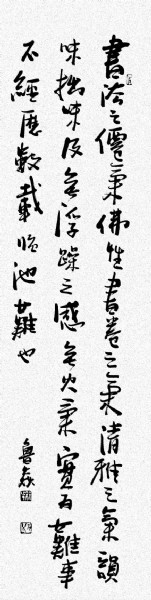 書法之僊氣佛性書卷之氣清雅之氣韻
味拙味及無浮躁之感無火氣實百難事
不經歷數載臨池難也
魯森